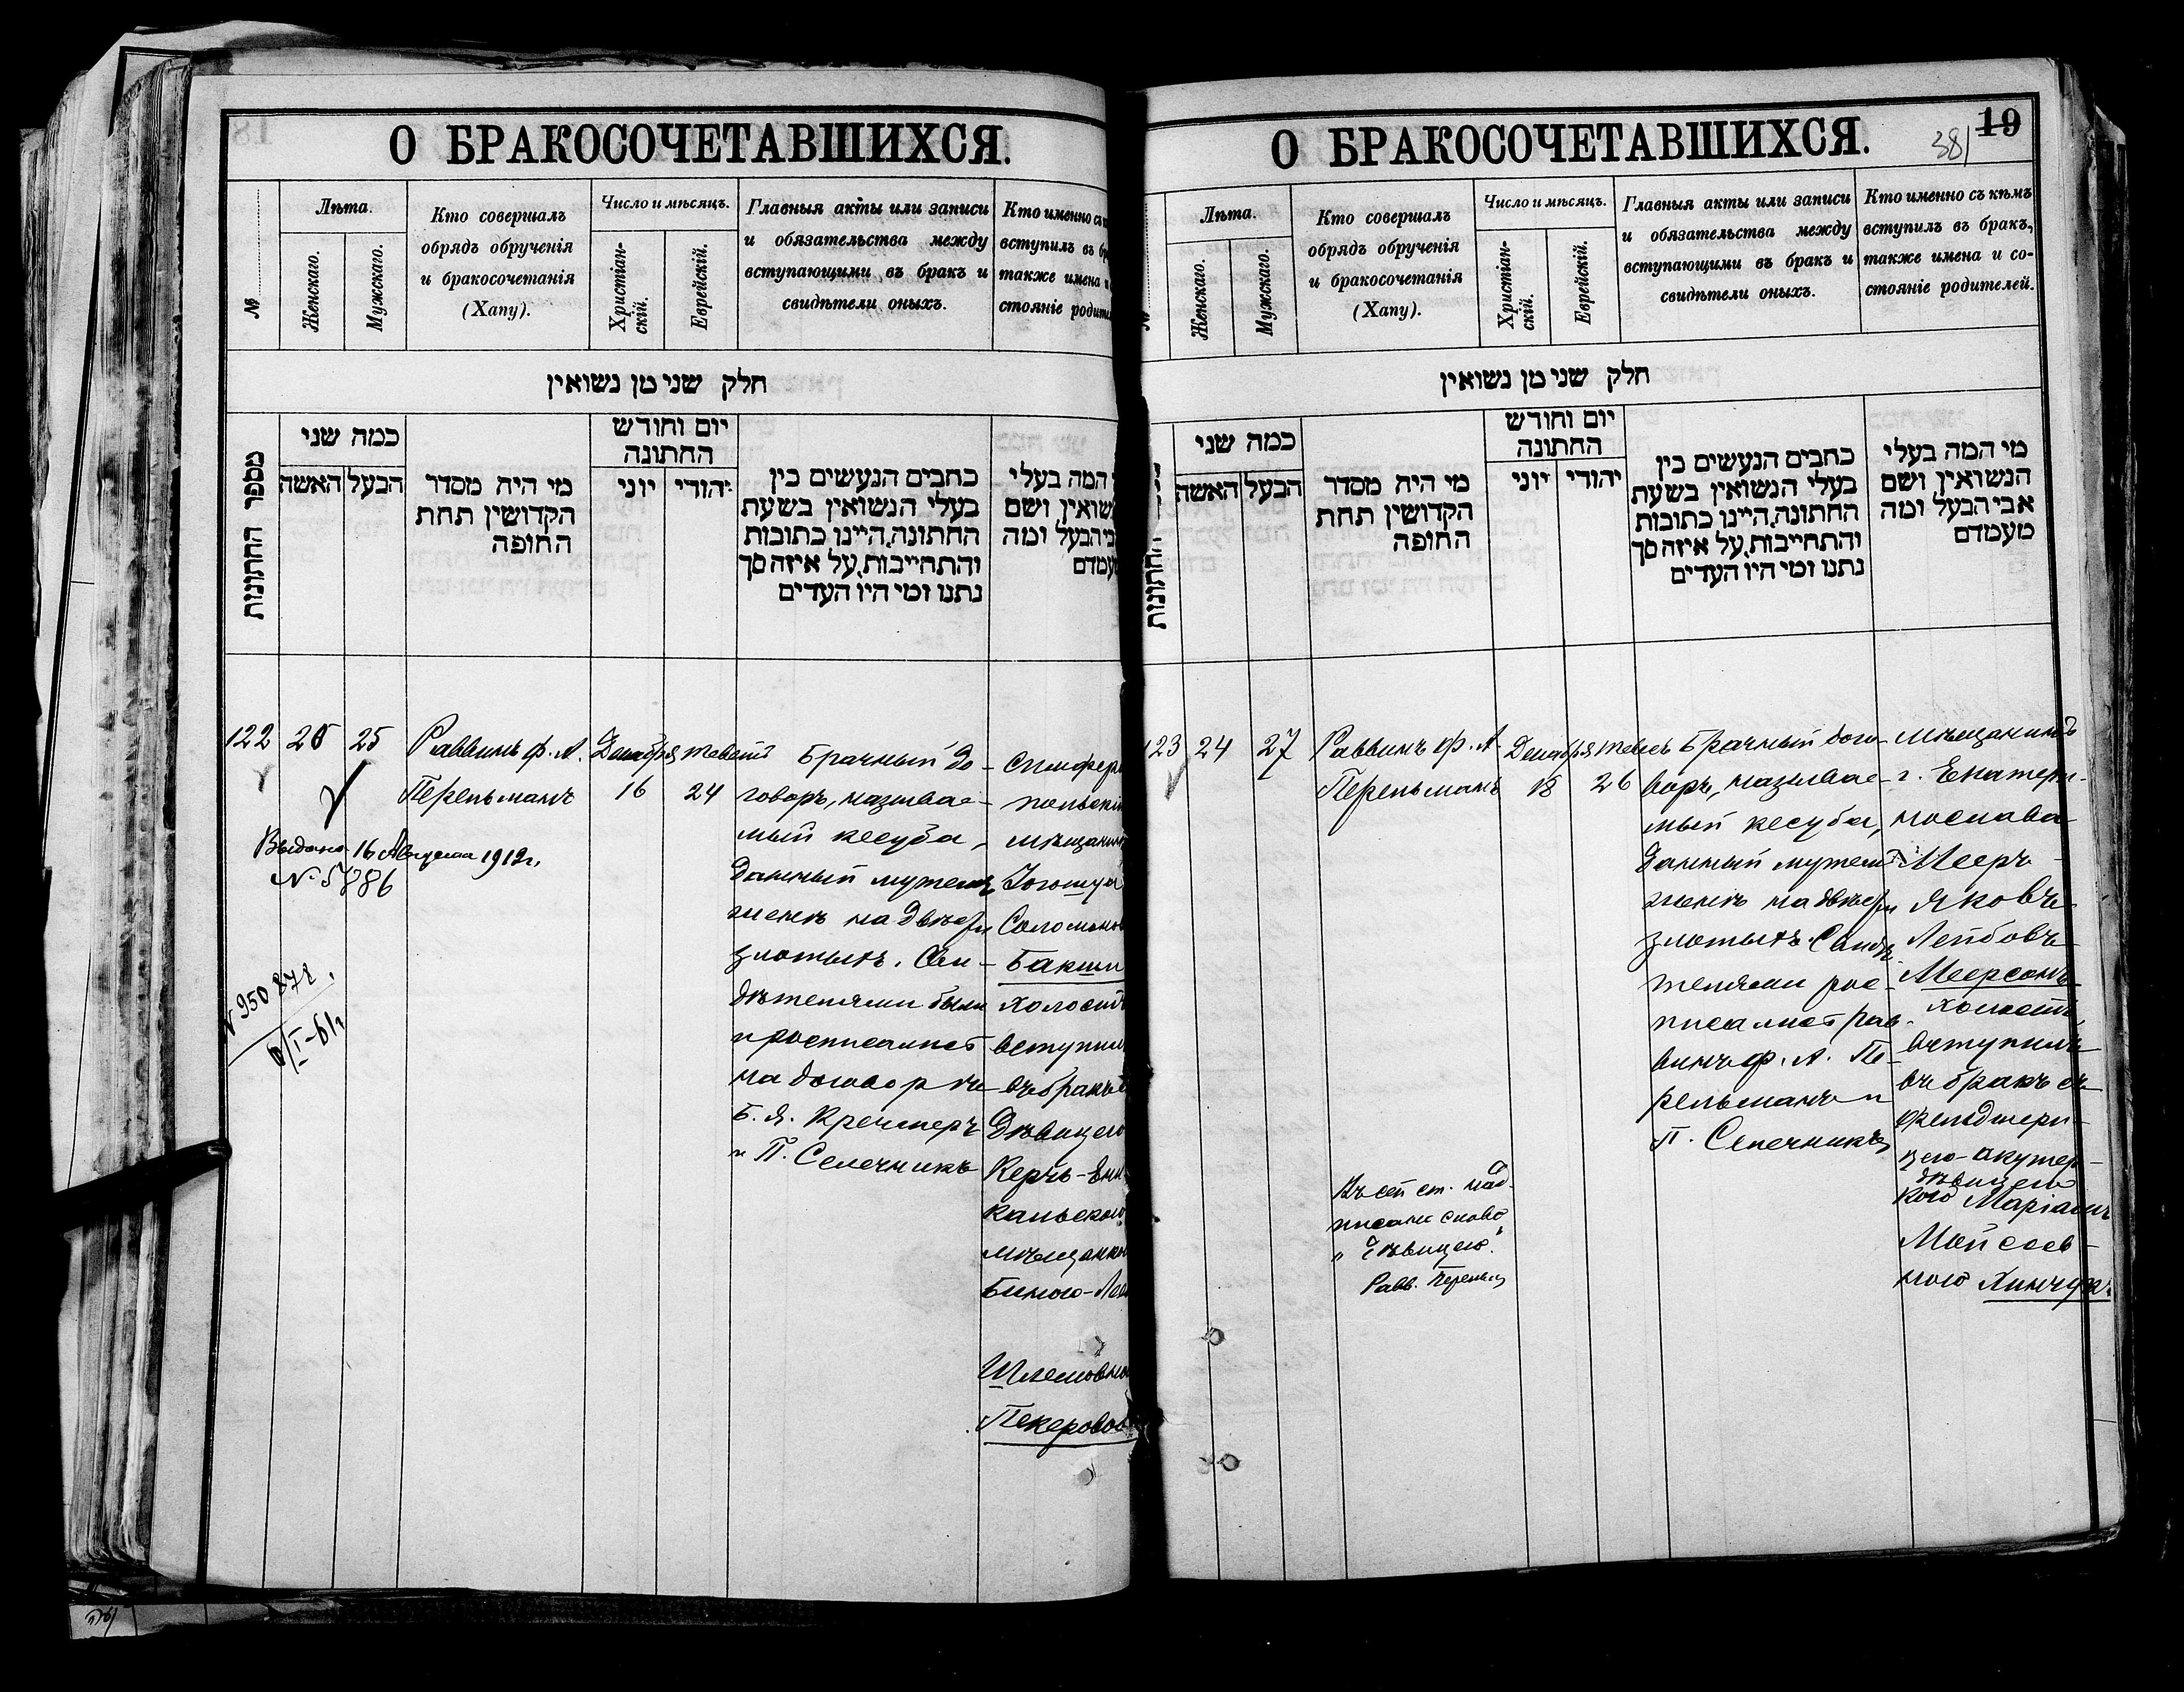 О БРАКОСОЧЕТАВШИХСЯ.
№
Лѣта.
Женскаго.
Мужскаго.
Кто совершалъ
обрядъ обрученія
и бракосочетанія
(Хапу).
Число и мѣсяцъ.
Христіан-
скій.
Еврейскій.
Главныя акты или записи
и обязательства между
вступающими въ бракъ и
свидѣтели оныхъ.
Кто именно съ
вступилъ въ
также имена
стояніе
חלק שני מן נשואין
מספר החתונות
כמה שני
האשה
הבעל
מי היה מסדר
הקדושין תחת
החופה
יום וחודש
החתונה
יוני
יהודי
כתבים הנעשים בין
בעלי הנשואין בשעת
החתונה, היינו כתובות
והתחייבות, על איזה סך
נתנו ומי היו העדים
המה בעלי
ושם
הבעל ומה
122
25
Раввинъ Ф. А.
Перельманъ
Декабря
16
24
Брачный до-
говоръ, называе-
мый кесуба,
данный мужемъ
женѣ на двѣсти
злотыхъ. Сви-
дѣтелями были
и росписались
на договорѣ
Б. Я. Кремеръ
и П. Селечникъ
Симферо
польскій
мѣщанинъ
Іогошуа
Соломонов
Бакши
холостъ
вступилъ
въ бракъ
дѣвицею
Керчь-Ени
кальскою
мѣщанкою
Биною-
Шлемовною
Пекеровою
Выдано 16 Августа 1912 г.
№ 950
О БРАКОСОЧЕТАВШИХСЯ.
38
19
Лѣта.
Женскаго.
Мужскаго.
Кто совершалъ
обрядъ обрученія
и бракосочетанія
(Хапу).
Число и мѣсяцъ.
Христіан-
скій.
Еврейскій.
Главныя акты или записи
и обязательства между
вступающими въ бракъ и
свидѣтели оныхъ.
Кто именно съ кѣмъ
вступилъ въ бракъ,
также имена и со-
стояніе родителей.
חלק שני מן נשואין
החתונות
כמה שני
האשה
הבעל
מי היה מסדר
הקדושין תחת
החופה
יום וחודש
החתונה
יוני
יהודי
כתבים הנעשים בין
בעלי הנשואין בשעת
החתונה, היינו כתובות
והתחייבות, על איזה סך
נתנו ומי היו העדים
מי המה בעלי
הנשואין ושם
אבי הבעל ומה
מעמדם
123
24
27
Раввинъ Ф. А.
Перельманъ
Декабря
18
26
Брачный дого-
воръ, называе-
мый кесуба,
данный мужемъ
женѣ на двѣсти
злотыхъ. Свидѣ
телями рос-
писались рав-
винъ Ф. А. Пе-
рельманъ и
П. Селечникъ
Мѣщанинъ
г. Екатери-
нослава
Мееръ-
Яковъ
Лейбовъ
Меерсонъ
холостъ,
вступилъ
въ бракъ съ
фельдшери-
цею-акушер-
дѣвицею
кою Маріамъ
Мойсеев-
ною
Къ сей ст. над-
писано слово
„дѣвицею."
Равв.